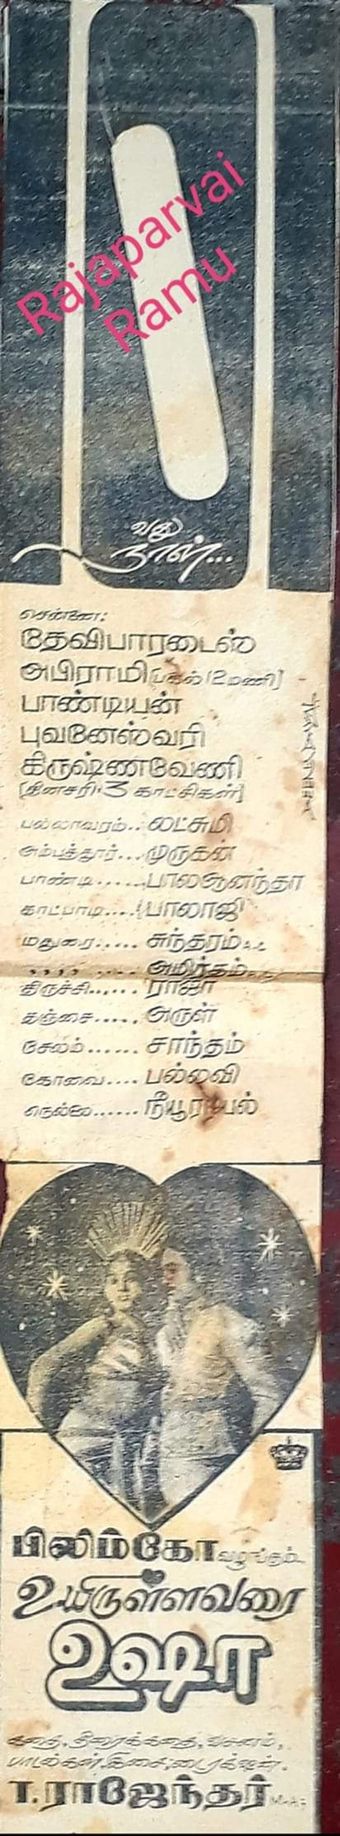 Rajaparvai
Ramu
1
வது
நாள்...
சென்னை:
தேவிபாரடைஸ்
அபிராமி [பகல் 12 மணி]
பாண்டியன்
புவனேஸ்வரி
கிருஷ்ணவேணி
[தினசரி 3 காட்சிகள்]
பல்லாவரம்... லட்சுமி
அம்பத்தூர்... முருகன்
பாண்டி...... பாலஆனந்தா
காட்பாடி.... பாலாஜி
மதுரை..... சுந்தரம்
,,,, ..... அமிர்தம்
திருச்சி...... ராஜா
தஞ்சை..... அருள்
சேலம்...... சாந்தம்
கோவை.... பல்லவி
நெல்லை...... நியூராயல்
பிலிம்கோ வழங்கும்
உயிருள்ளவரை
உஷா
கதை, திரைக்கதை, வசனம்,
பாடல்கள், இசை, டைரக்ஷன்.
T.ராஜேந்தர் M.A.;